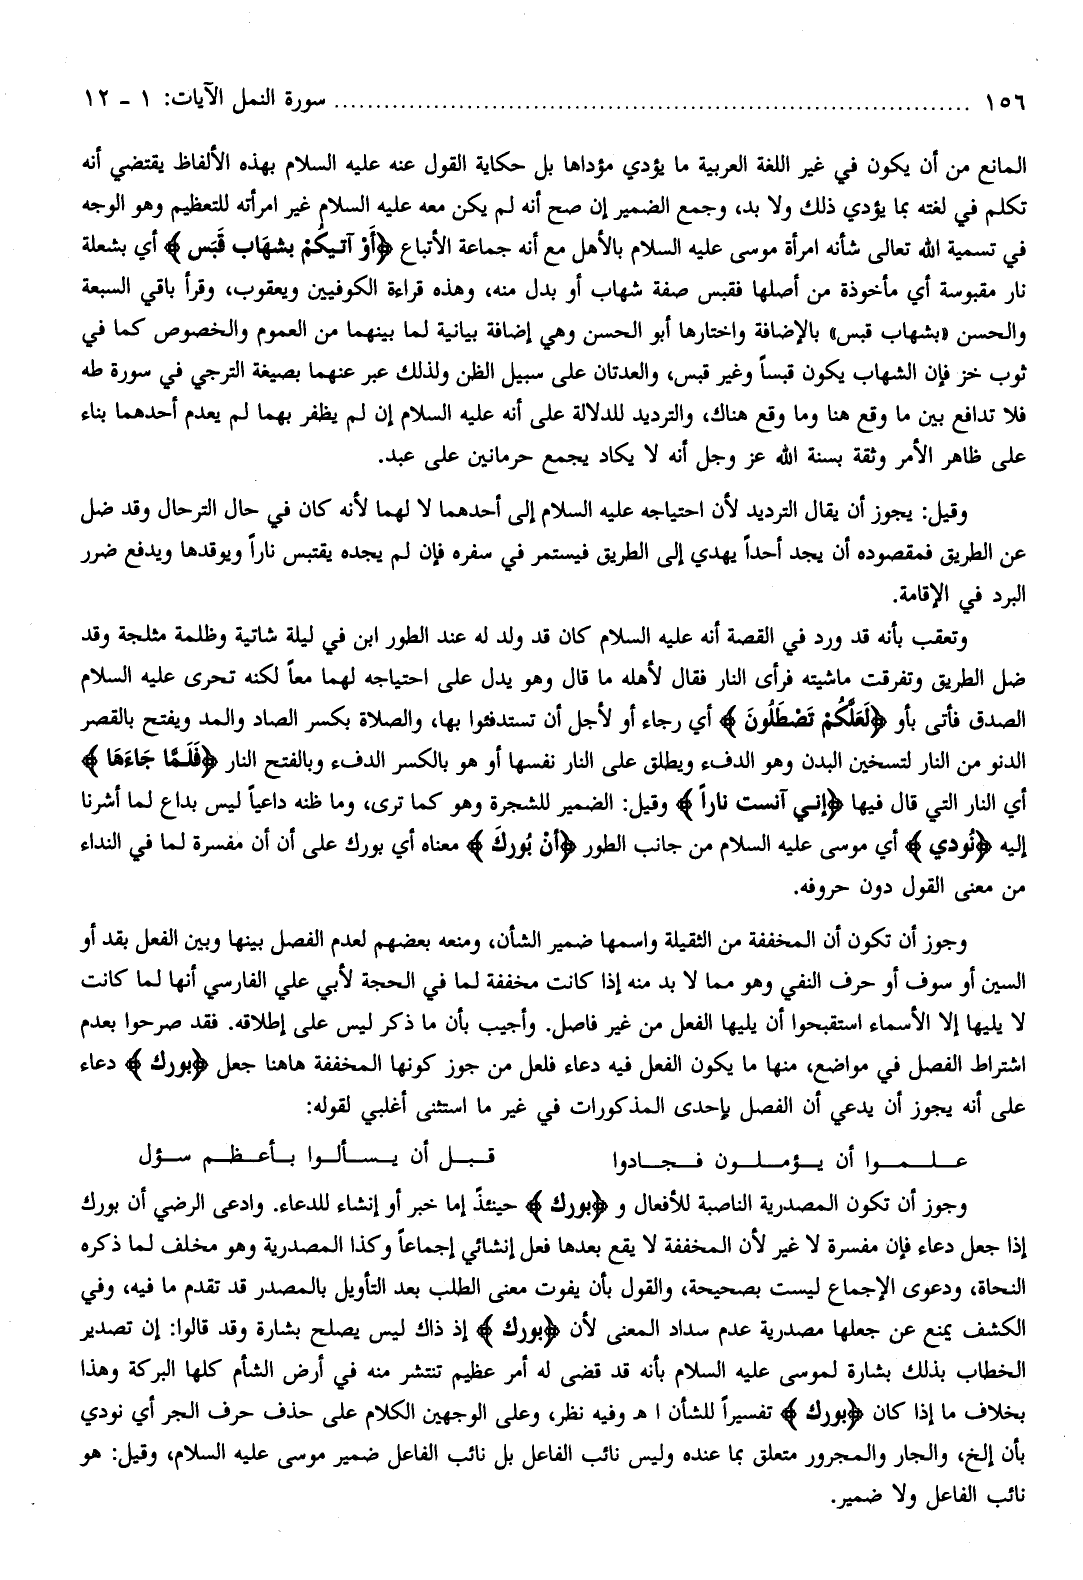 ١٥٦ ........................................................................ سورة النمل الآيات: ١ - ١٢
المانع من أن يكون في غير اللغة العربية ما يؤدي مؤداها بل حكاية القول عنه عليه السلام بهذه الألفاظ يقتضي أنه
تكلم في لغته بما يؤدي ذلك ولا بد، وجمع الضمير إن صح أنه لم يكن معه عليه السلام غير امرأته للتعظيم وهو الوجه
في تسمية الله تعالى شأنه امرأة موسى عليه السلام بالأهل مع أنه جماعة الأتباع ﴿أَوْ آتيكُمْ بشهَاب قَبَس﴾ أي بشعلة
نار مقبوسة أي مأخوذة من أصلها فقبس صفة شهاب أو بدل منه، وهذه قراءة الكوفيين ويعقوب، وقرأ باقي السبعة
والحسن «بشهاب قبس» بالإضافة واختارها أبو الحسن وهي إضافة بيانية لما بينهما من العموم والخصوص كما في
ثوب خز فإن الشهاب يكون قبساً وغير قبس، والعدتان على سبيل الظن ولذلك عبر عنهما بصيغة الترجي في سورة طه
فلا تدافع بين ما وقع هنا وما وقع هناك، والترديد للدلالة على أنه عليه السلام إن لم يظفر بهما لم يعدم أحدهما بناء
على ظاهر الأمر وثقة بسنة الله عز وجل أنه لا يكاد يجمع حرمانين على عبد.
وقيل: يجوز أن يقال الترديد لأن احتياجه عليه السلام إلى أحدهما لا لهما لأنه كان في حال الترحال وقد ضل
عن الطريق فمقصوده أن يجد أحداً يهدي إلى الطريق فيستمر في سفره فإن لم يجده يقتبس ناراً ويوقدها ويدفع ضرر
البرد في الإقامة.
وتعقب بأنه قد ورد في القصة أنه عليه السلام كان قد ولد له عند الطور ابن في ليلة شاتية وظلمة مثلجة وقد
ضل الطريق وتفرقت ماشيته فرأى النار فقال لأهله ما قال وهو يدل على احتياجه لهما معاً لكنه تحرى عليه السلام
الصدق فأتى بأو ﴿لَعَلَّكُمْ تَصْطَلُونَ﴾ أي رجاء أو لأجل أن تستدفئوا بها، والصلاة بكسر الصاد والمد ويفتح بالقصر
الدنو من النار لتسخين البدن وهو الدفء ويطلق على النار نفسها أو هو بالكسر الدفء وبالفتح النار ﴿فَلَمَّا جَاءَهَا﴾
أي النار التي قال فيها ﴿إني آنست ناراً﴾ وقيل: الضمير للشجرة وهو كما ترى، وما ظنه داعياً ليس بداع لما أشرنا
إليه ﴿نُودي﴾ أي موسى عليه السلام من جانب الطور ﴿أَنْ بُوركَ﴾ معناه أي بورك على أن أن مفسرة لما في النداء
من معنى القول دون حروفه.
وجوز أن تكون أن المخففة من الثقيلة واسمها ضمير الشأن، ومنعه بعضهم لعدم الفصل بينها وبين الفعل بقد أو
السين أو سوف أو حرف النفي وهو مما لا بد منه إذا كانت مخففة لما في الحجة لأبي علي الفارسي أنها لما كانت
لا يليها إلا الأسماء استقبحوا أن يليها الفعل من غير فاصل. وأجيب بأن ما ذكر ليس على إطلاقه. فقد صرحوا بعدم
اشتراط الفصل في مواضع، منها ما يكون الفعل فيه دعاء فلعل من جوز كونها المخففة هاهنا جعل ﴿بورك﴾ دعاء
على أنه يجوز أن يدعي أن الفصل بإحدى المذكورات في غير ما استثنى أغلبي لقوله:
علـمـوا أن يـؤمـلـون فـجـادوا قـبـل أن يـسـألـوا بـأعـظـم سـؤل
وجوز أن تكون المصدرية الناصبة للأفعال و ﴿بورك﴾ حينئذٍ إما خبر أو إنشاء للدعاء. وادعى الرضي أن بورك
إذا جعل دعاء فإن مفسرة لا غير لأن المخففة لا يقع بعدها فعل إنشائي إجماعاً وكذا المصدرية وهو مخلف لما ذكره
النحاة، ودعوى الإجماع ليست بصحيحة، والقول بأن يفوت معنى الطلب بعد التأويل بالمصدر قد تقدم ما فيه، وفي
الكشف يمنع عن جعلها مصدرية عدم سداد المعنى لأن ﴿بورك﴾ إذ ذاك ليس يصلح بشارة وقد قالوا: إن تصدير
الخطاب بذلك بشارة لموسى عليه السلام بأنه قد قضى له أمر عظيم تنتشر منه في أرض الشأم كلها البركة وهذا
بخلاف ما إذا كان ﴿بورك﴾ تفسيراً للشأن ا هـ وفيه نظر، وعلى الوجهين الكلام على حذف حرف الجر أي نودي
بأن إلخ، والجار والمجرور متعلق بما عنده وليس نائب الفاعل بل نائب الفاعل ضمير موسى عليه السلام، وقيل: هو
نائب الفاعل ولا ضمير.